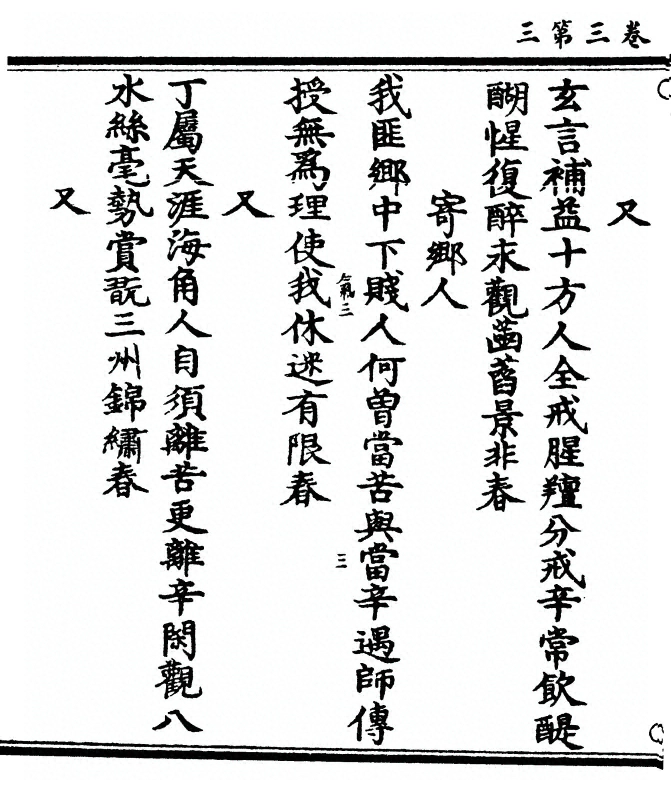 卷三第三
又
玄言補益十方人全戒腥羶分戒辛常飲醍
醐惺復醉永觀菡萏景非春
寄鄉人
我匪鄉中下賤人何曾當苦與當辛遇師傳
授無爲理使我休迷有限春
又
丁屬天涯海角人自須離苦更離辛閑觀八
水絲毫勢賞翫三州錦繡春
又